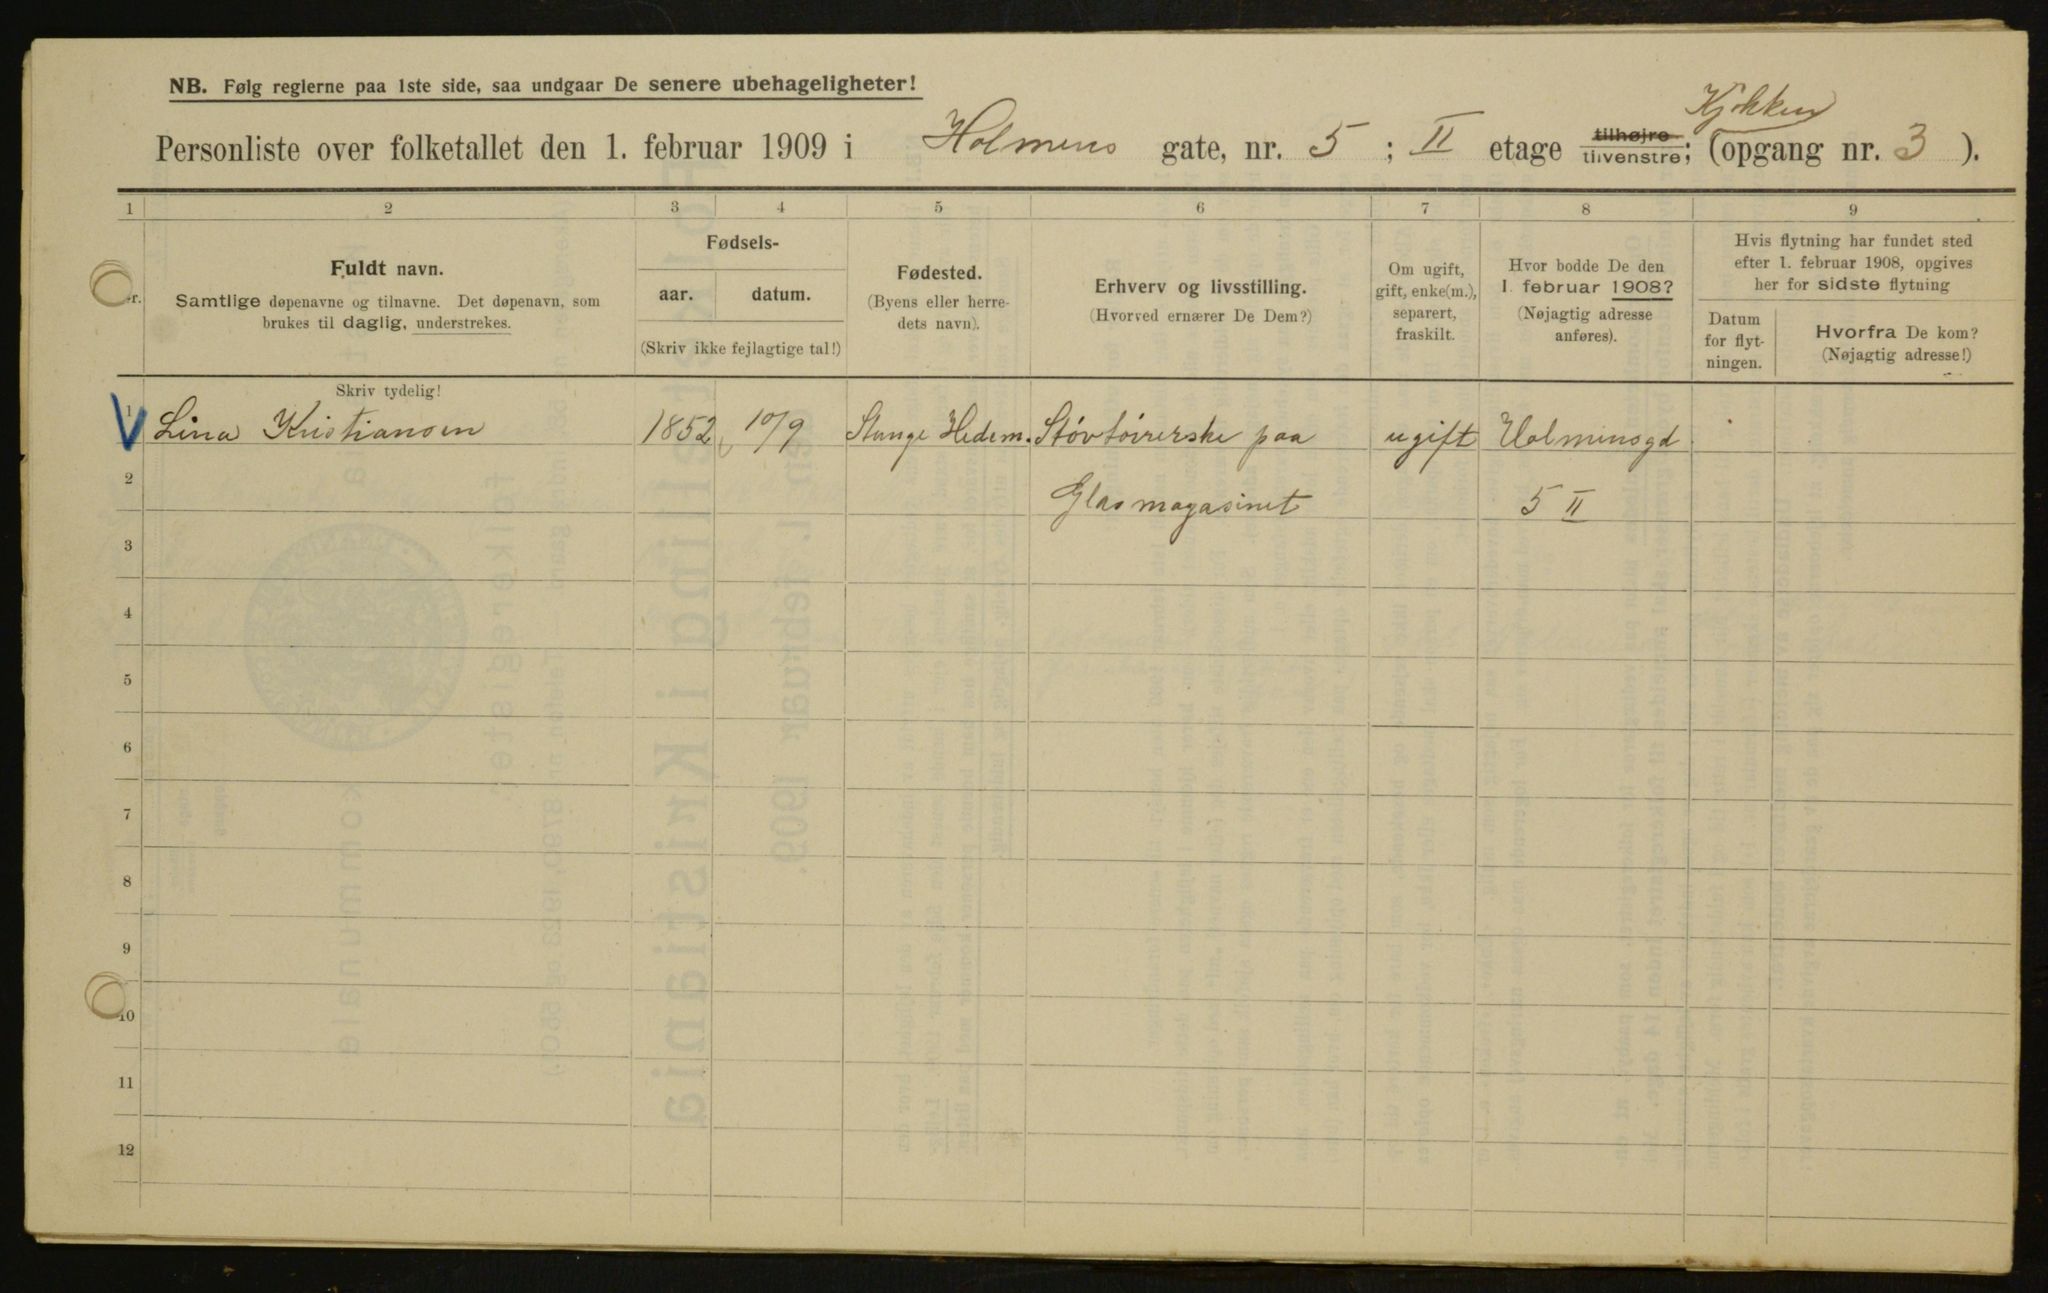 NB. Følg reglerne paa 1ste side, saa undgaar De senere ubehageligheter!
Kjøkken
Personliste over folketallet den 1. februar 1909 i Holmens gate, nr. 5 ; II etage tilhøjre tilvenstre; (opgang nr. 3 ).
1 2 3 4 5 6 7 8 9
Nr.
Fuldt navn.
Samtlige døpenavne og tilnavne. Det døpenavn, som
brukes til daglig, understrekes.
Fødsels-
aar. datum.
(Skriv ikke fejlagtige tal!)
Fødested.
(Byens eller herre-
dets navn).
Erhverv og livsstilling.
(Hvorved ernærer De Dem?)
Om ugift,
gift, enke(m.),
separert,
fraskilt.
Hvor bodde De den
1. februar 1908?
(Nøjagtig adresse
anføres).
Hvis flytning har fundet sted
efter 1. februar 1908, opgives
her for sidste flytning
Datum
for flyt-
ningen.
Hvorfra De kom?
(Nøjagtig adresse!)
Skriv tydelig!
1 Lina Kristiansen 1852 10/9 Stange Hedem. Støvtøirerske paa ugift Holmensgd
2 Glasmagasinet 5 II
3
4
5
6
7
8
9
10
11
12